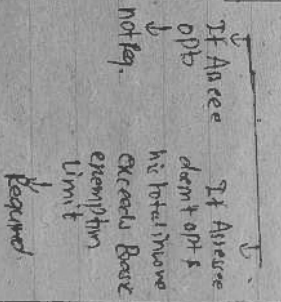 If Assee
opts
↓
not Req.
If Assesee
doesnt opt &
his total income
exceeds Basic
exemption
limit
↓
Required